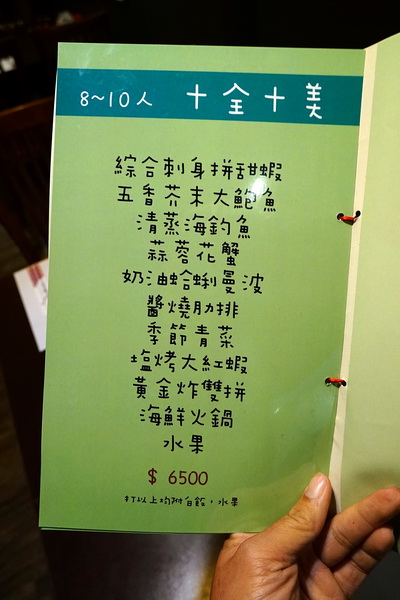 8~10人 十全十美
綜合刺身拼甜蝦
五香芥末大鮑魚
清蒸海釣魚
蒜蓉花蟹
奶油蛤蜊曼波
醬燒肋排
季節青菜
塩烤大紅蝦
黃金炸雙拼
海鮮火鍋
水果
$ 6500
以上均附白飯，水果